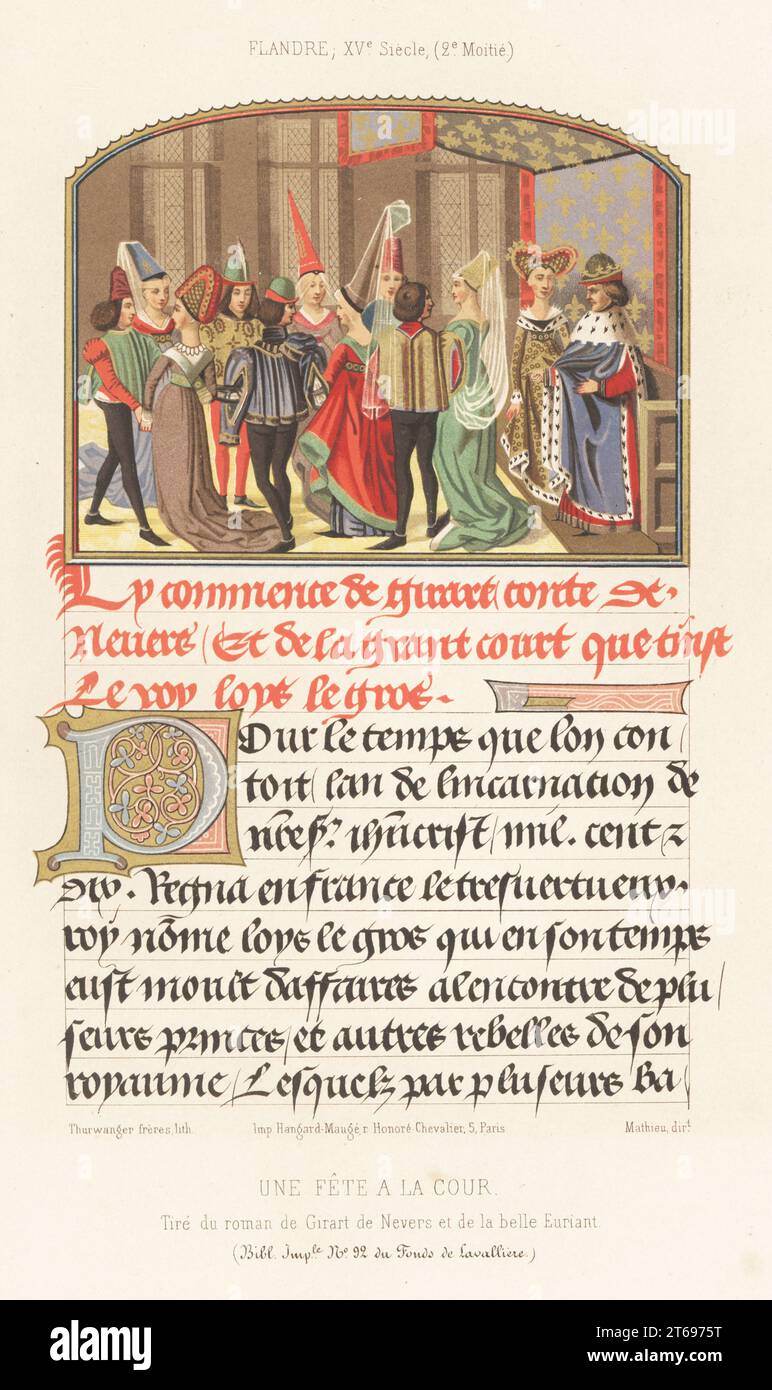 FLANDRE; XVe Siècle, (2e Moitié.)
Cy commence de girart conte de
Nevers / Et de la grant court que tinst
Le roy loys le gros.
POur le temps que lon con/
toit / lan de lincarnation de
nr̃e sr̃. ihũcrist / mil. cent z
dix. Regna en france le tresvertueux.
roy nõme loys le gros qui en son temps
eust moult daffaires alencontre de plu/
seurs princes / et autres rebelles de son
royaume / Lesquelz par pluseurs ba/
Thurwanger frères, lith.
Imp Hangard-Maugé, r. Honoré-Chevalier, 5, Paris
Mathieu, dirt.
UNE FÊTE A LA COUR.
Tiré du roman de Girart de Nevers et de la belle Euriant.
(Bibl. Imple No. 92 du Fonds de Lavallière.)
alamy
alamy
Image ID: 2T6975T
www.alamy.com